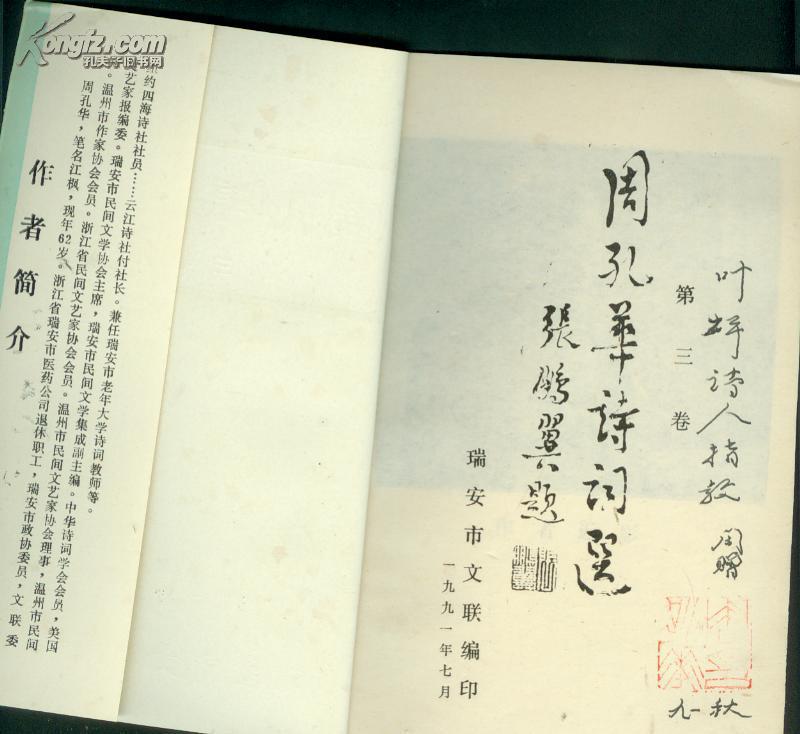 Kongfz.com
孔夫子旧书网
作者简介
周孔华，笔名江枫，现年62岁。浙江省瑞安市医药公司退休职工，瑞安市政协委员，文联委
。温州市作家协会会员。浙江省民间文艺家协会会员。温州市民间文艺家协会理事，温州市民间
艺家报编委。瑞安市民间文学协会主席，瑞安市民间文学集成副主编。中华诗词学会会员，美国
纽约四海诗社社员……云江诗社付社长。兼任瑞安市老年大学诗词教师等。
叶 诗人指教 周赠
九一秋
第三卷
周孔華詩詞選
張鵬翼題
瑞安市文联编印
一九九一年七月